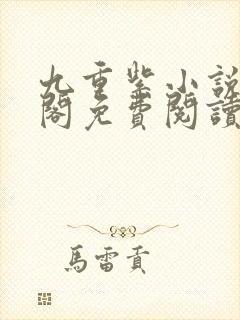 九重紫小說
閣免費閱讀
馬雷貢